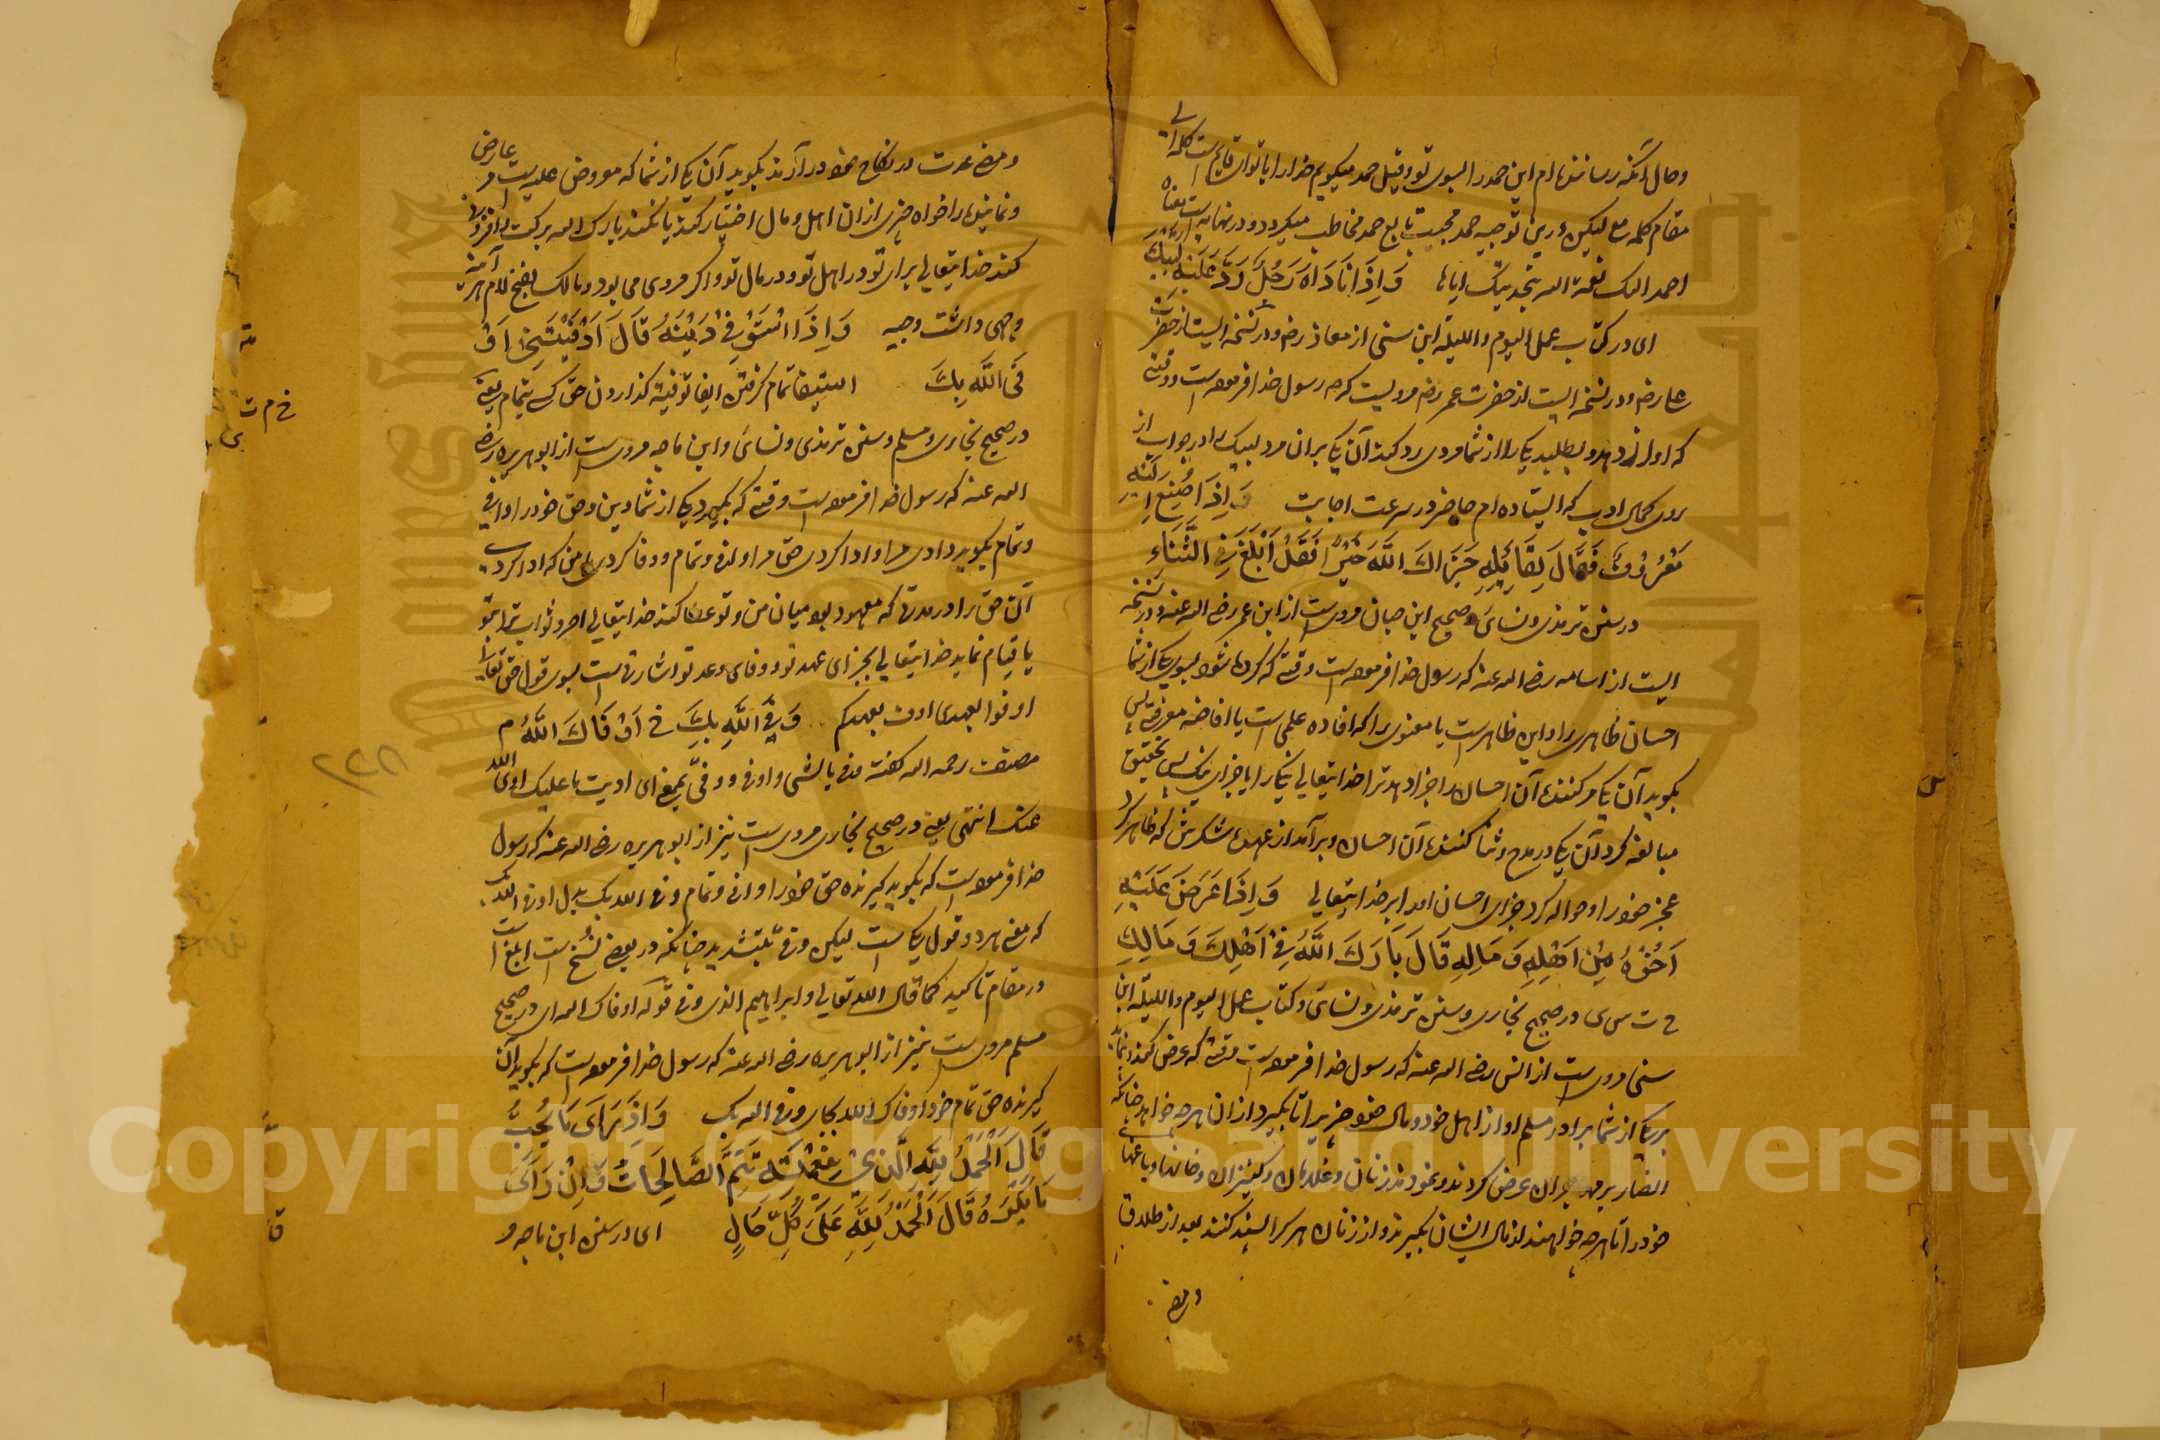 وحال آنکه رسانند ام این حمد را بسوی تو وقیل حمد میکویم خدا را با تو ای قایم است کلمه الی
مقام کلمه مع لیکن درین توجیه حمد محبت تابع حمد مخاطب میکردد و در نهایه است معناه
احمد الیک نعمة الله بتحدیثک ایاها وَاِذَا نَادَاهُ رَجُلٌ رَدَّ عَلَیْهِ لَبَّیْكَ
ای در کتاب عمل الیوم واللیلة ابن سنی از معاذ رض و در نسخه ایست از حضرت
که اواز دهد و بطلبد یکی را از شما مردی رد کند آن یکی بران مرد لبیک را در جواب از
روی کمال ادب که ایستاده ام حاضر در سرعت اجابت وَاِذَا صُنِعَ اِلَیْهِ
مَعْرُوفٌ فَقَالَ لِفَاعِلِهِ جَزَاكَ اللَّهُ خَیْرًا فَقَدْ اَبْلَغَ فِی الثَّنَاءِ
در سنن ترمذی ونسائی وصحیح ابن حبان مرویست از ابن عمر رضی الله عنه ودر نسخه
ایست از اسامه رضی الله عنه که رسول خدا فرموده است وقتی که کرده شود بسوی یکی از شما
احسان ظاهری را و این ظاهر است یا معنوی را که افاده علمی است یا افاضه معرفتی پس
بکوید آن یکی مر کننده آن احسان را جزا دهد ترا خدایتعالی نیکی را یا جزای نیک پس بتحقیق
مبالغه کرد آن یکی در مدح وثنا کننده آن احسان وبر آمد از عهده شکرش که ظاهر کرد
عجز خود را وحواله کرد جزای احسان او را بر خدایتعالی وَاِذَا عَرَضَ عَلَیْهِ
اَخُوْهُ مِنْ اَهْلِهِ وَمَالِهِ قَالَ بَارَكَ اللَّهُ فِیْ اَهْلِكَ وَمَالِكَ
خ ت س ی در صحیح بخاری وسنن ترمذی ونسائی وکتاب عمل الیوم واللیلة ابن
سنی مرویست از انس رضی الله عنه که رسول خدا فرموده است وقتی که عرض کند ونماید
بر یکی از شما برادر مسلم او از اهل خود ومال خود چیزی را تا بکیرد از ان هرچه خواهد چنانکه
خود را تا هرچه خواهند از مال ایشان بکیرند و از زنان هر کرا پسند کنند بعد از طلاق
ومضی عدت در نکاح خود در آرند بکوید آن یکی از شما که معروض علیه است مر عارض
ونماینده را خواه چیزی از ان اهل ومال اختیار کند یا نکند بارک الله برکت وافزونی
کند خدایتعالی برای تو در اهل تو ودر مال تو
وجهی داشت وجیه وَاِذَا اسْتَوْفٰی دَیْنَهُ قَالَ اَوْفَیْتَنِیْ اَوْ
فَی اللَّهُ بِكَ استیفا تمام کرفتن ایفا توفیه کذاردن حق کسی بتمام یعنی
در صحیح بخاری ومسلم وسنن ترمذی ونسائی وابن ماجه مرویست از ابو هریره رضی
الله عنه که رسول خدا فرموده است وقتی که بکیرد یکی از شما دین وحق خود را وافی
وتمام بکوید دادی مرا وادا کردی حق مرا وافی وتمام ووفا کردی بامن که ادا کردی
آن حق را در مدتی که معهود بود میان من وتو عطا کند خدایتعالی اجر وثواب ترا بتو
یا قیام نماید خدایتعالی بجزای عهد تو ووفای وعد تو اشارت است بسوی قول حق تعالی
اوفوا بعهدی اوف بعهدکم وَفَی اللَّهُ بِكَ خ اَوْفَاكَ اللَّهُ م
مصنف رحمه الله کفته وفی بالشی واوفی ووفّی بمعنی ای ادیت ما علیک اوفی الله
عنک انتهی یعنی در صحیح بخاری مرویست نیز از ابو هریره رضی الله عنه که رسول
خدا فرموده است که بکوید کیرنده حق خود را وافی وتمام وفی الله بک بدل اوفی الله بک
که معنی هر دو قول یکی است لیکن وفی بتشدید چنانکه در بعضی نُسَخ است ابلغ است
در مقام تاکید کما قال الله تعالی وابراهیم الذی وفی قوله اوفاک الله ای در صحیح
مسلم مرویست نیز از ابو هریره رضی الله عنه که رسول خدا فرموده است که بکوید آن
کیرنده حق تمام خود اوفاک الله بجای وفی الله بک وَاِذَا رَاٰی مَا یُحِبُّ
قَالَ اَلْحَمْدُ لِلَّهِ الَّذِیْ بِنِعْمَتِهِ تَتِمُّ الصَّالِحَاتُ وَاِنْ رَاٰی
مَا یَکْرَهُ قَالَ اَلْحَمْدُ لِلَّهِ عَلَی کُلِّ حَالٍ ای در سنن ابن ماجه و
خ م ت
ق
Copyright © King Saud University